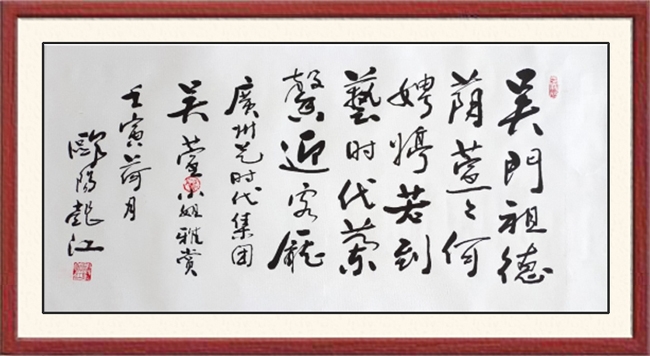 吴門祖德
荫萱〻何
娉婷若到
藝时代蘭
馨迎客廳
廣州艺时代集团
吴萱小姐雅赏
壬寅荷月
歐陽江